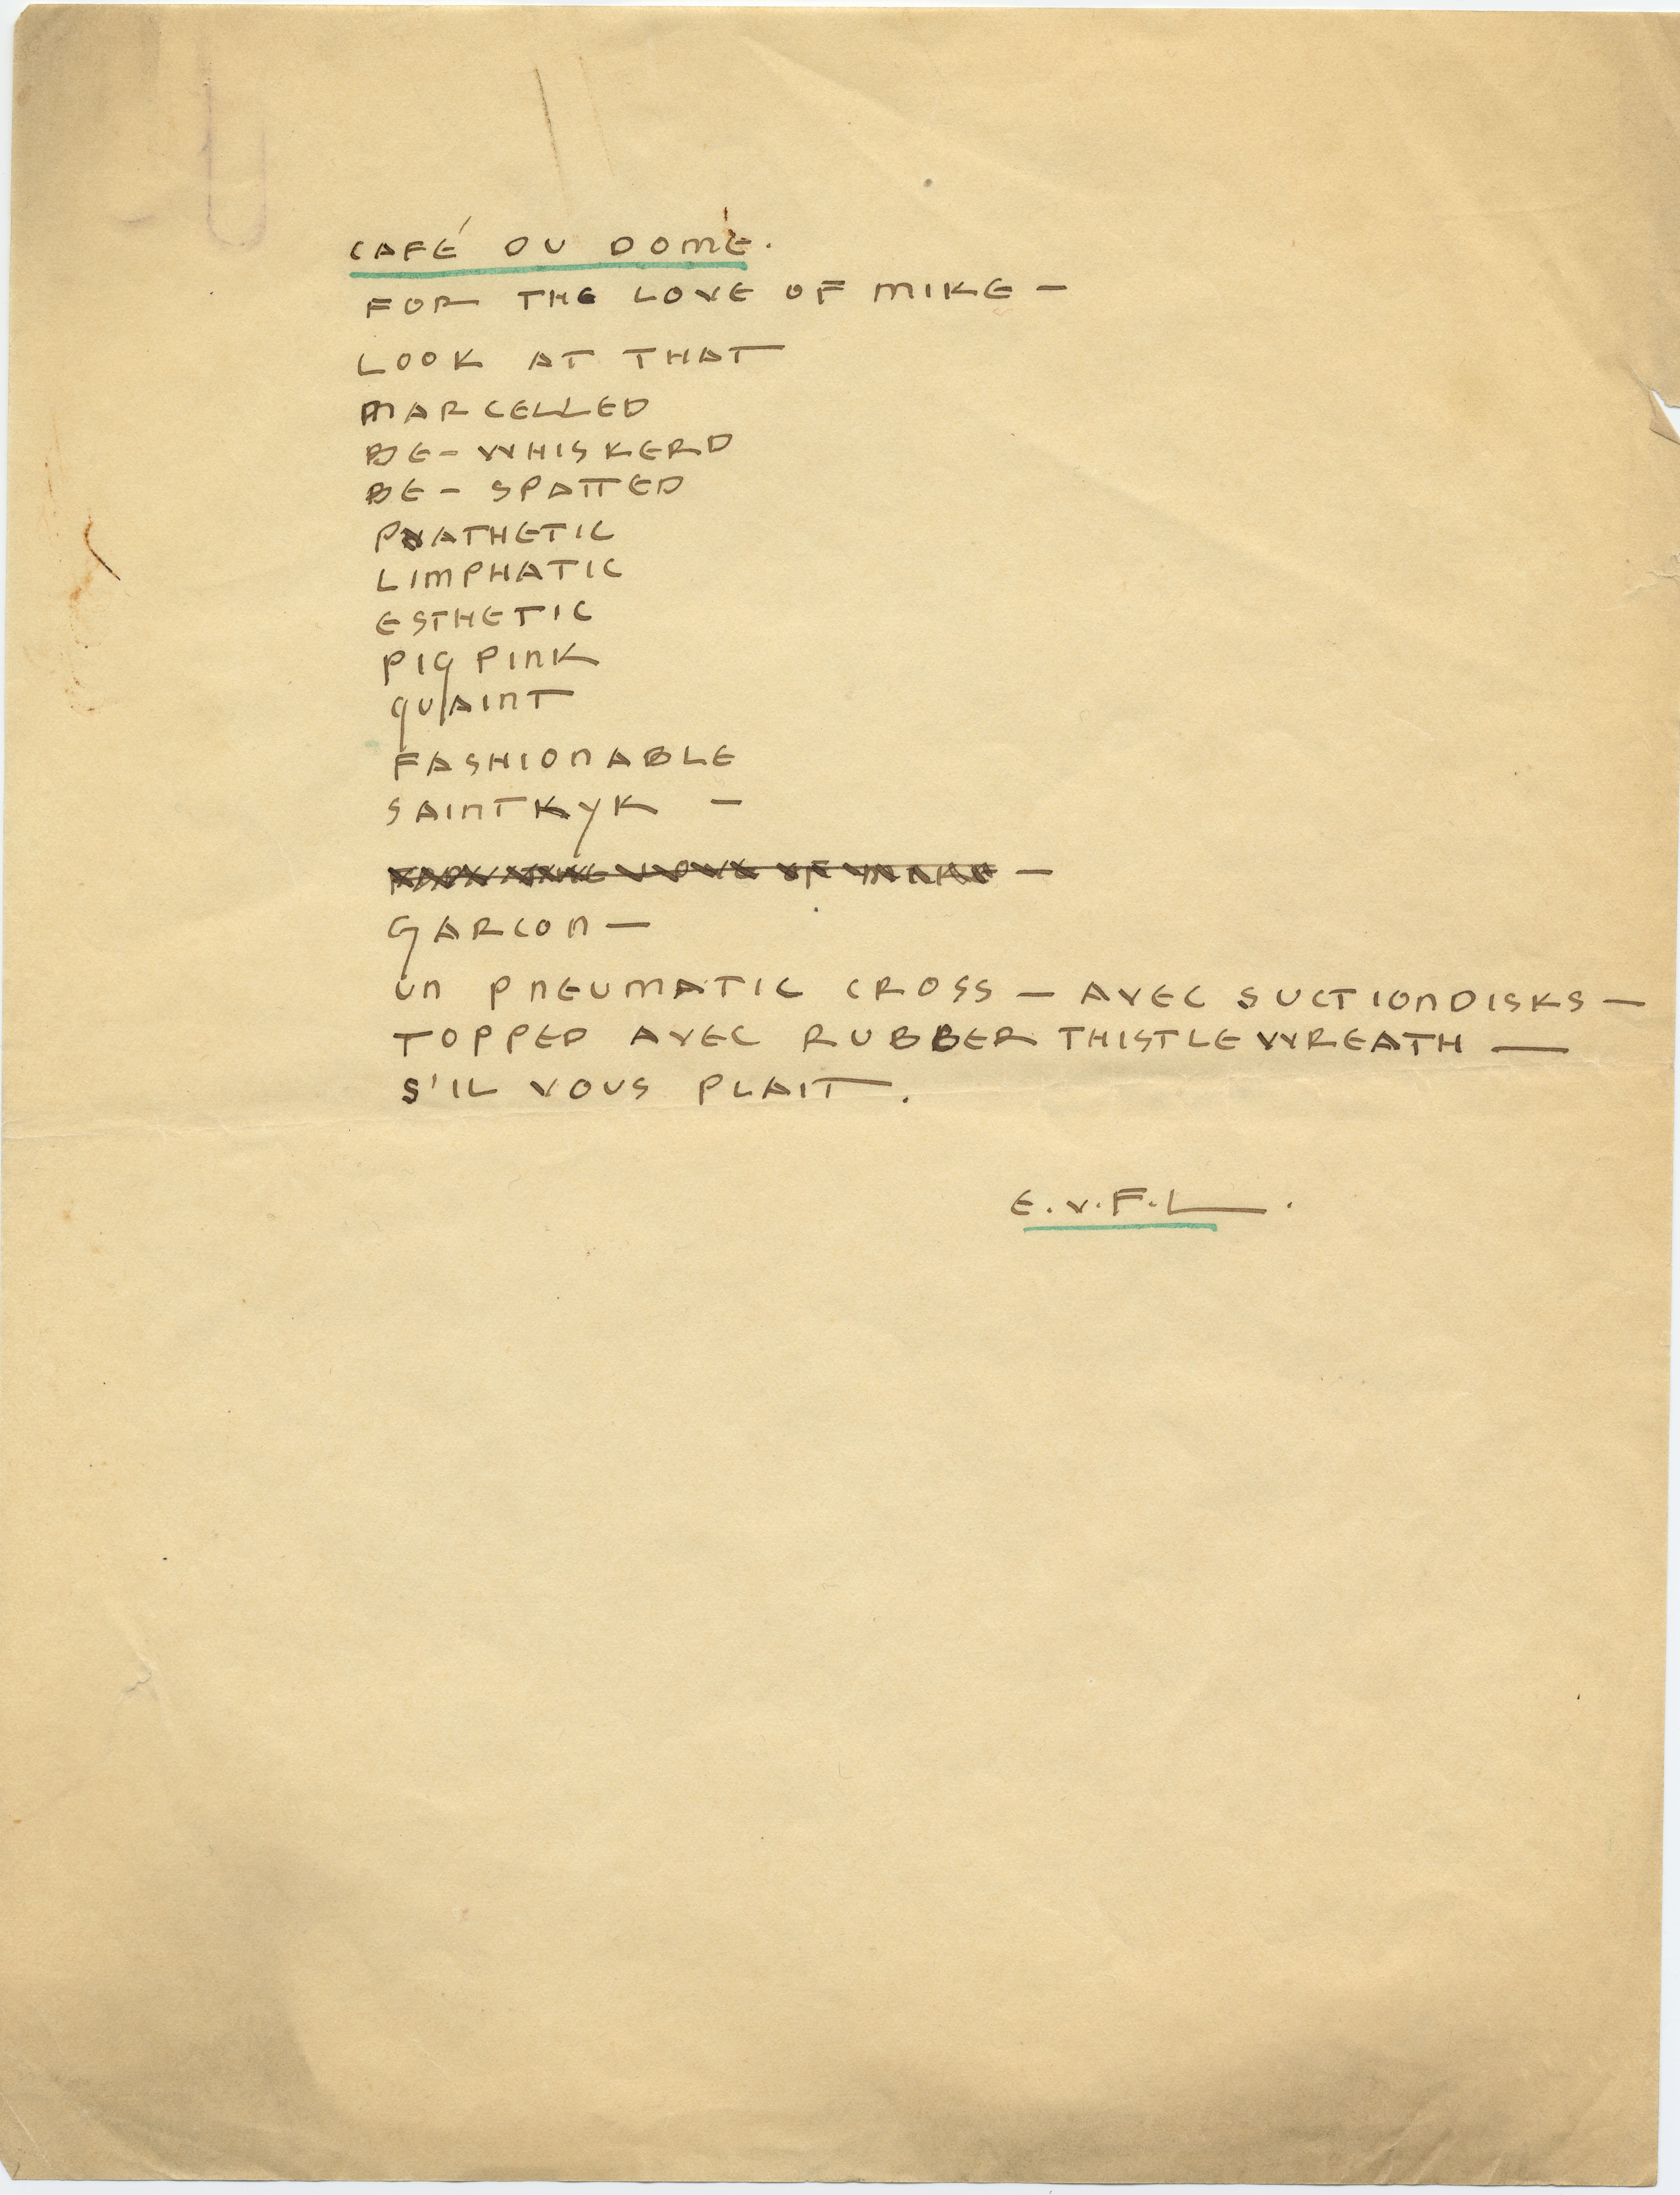 CAFÉ DU DOME.
FOR THE LOVE OF MIKE —
LOOK AT THAT
MARCELLED
BE-WHISKERD
BE-SPATTED
PATHETIC
LIMPHATIC
ESTHETIC
PIG PINK
QUAINT
FASHIONABLE
SAINTKYK —
FOR THE LOVE OF MIKE —
GARCON —
UN PNEUMATIC CROSS — AVEC SUCTIONDISKS —
TOPPED AVEC RUBBER THISTLEWREATH —
S'IL VOUS PLAIT.
E.v.F.L.